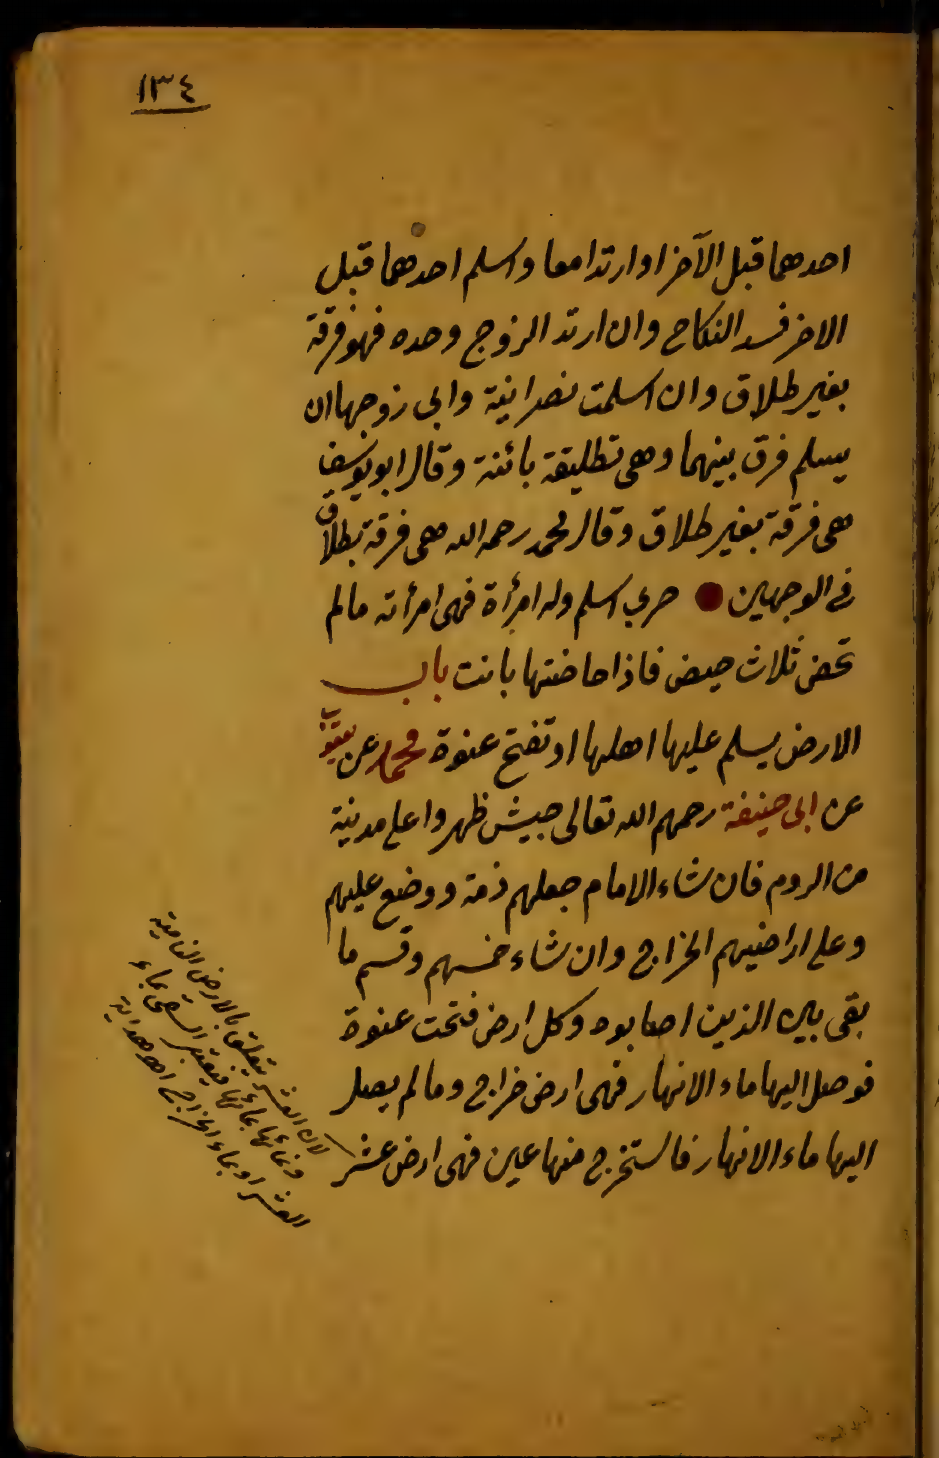 ١٣٤
احدهما قبل الآخر او ارتدا معا واسلم احدهما قبل
الاخر فسد النكاح وان ارتد الزوج وحده فهو فرقة
بغير طلاق وان اسلمت نصرانية وابى زوجها ان
يسلم فرق بينهما وهى تطليقة بائنة وقال ابو يوسف
هى فرقة بغير طلاق وقال محمد رحمه الله هى فرقة بطلاق
فى الوجهين حربى اسلم وله امرأة فهى امرأته مالم
تحض ثلاث حيض فاذا حاضتها بانت باب
الارض يسلم عليها اهلها او تفتح عنوة محمد عن يعقوب
عن ابى حنيفة رحمهم الله تعالى جيش ظهروا على مدينة
من الروم فان شاء الامام جعلهم ذمة ووضع عليهم
وعلى اراضيهم الخراج وان شاء خمسهم وقسم ما
بقى بين الذين اصابوه وكل ارض فتحت عنوة
فوصل اليها ماء الانهار فهى ارض خراج ومالم يصل
اليها ماء الانهار فاستخرج منها عين فهى ارض عشر
لان العشر يتعلق بالارض النامية
ونمائها بمائها فيعتبر السقى بماء
العشر او بماء الخراج اهـ هداية